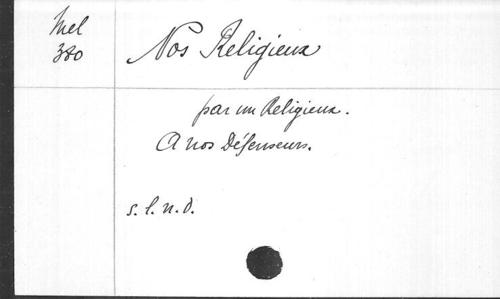 Mel
380
Nos Religieux
par un Religieux.
A nos Défenseurs.
s. l. n. d.